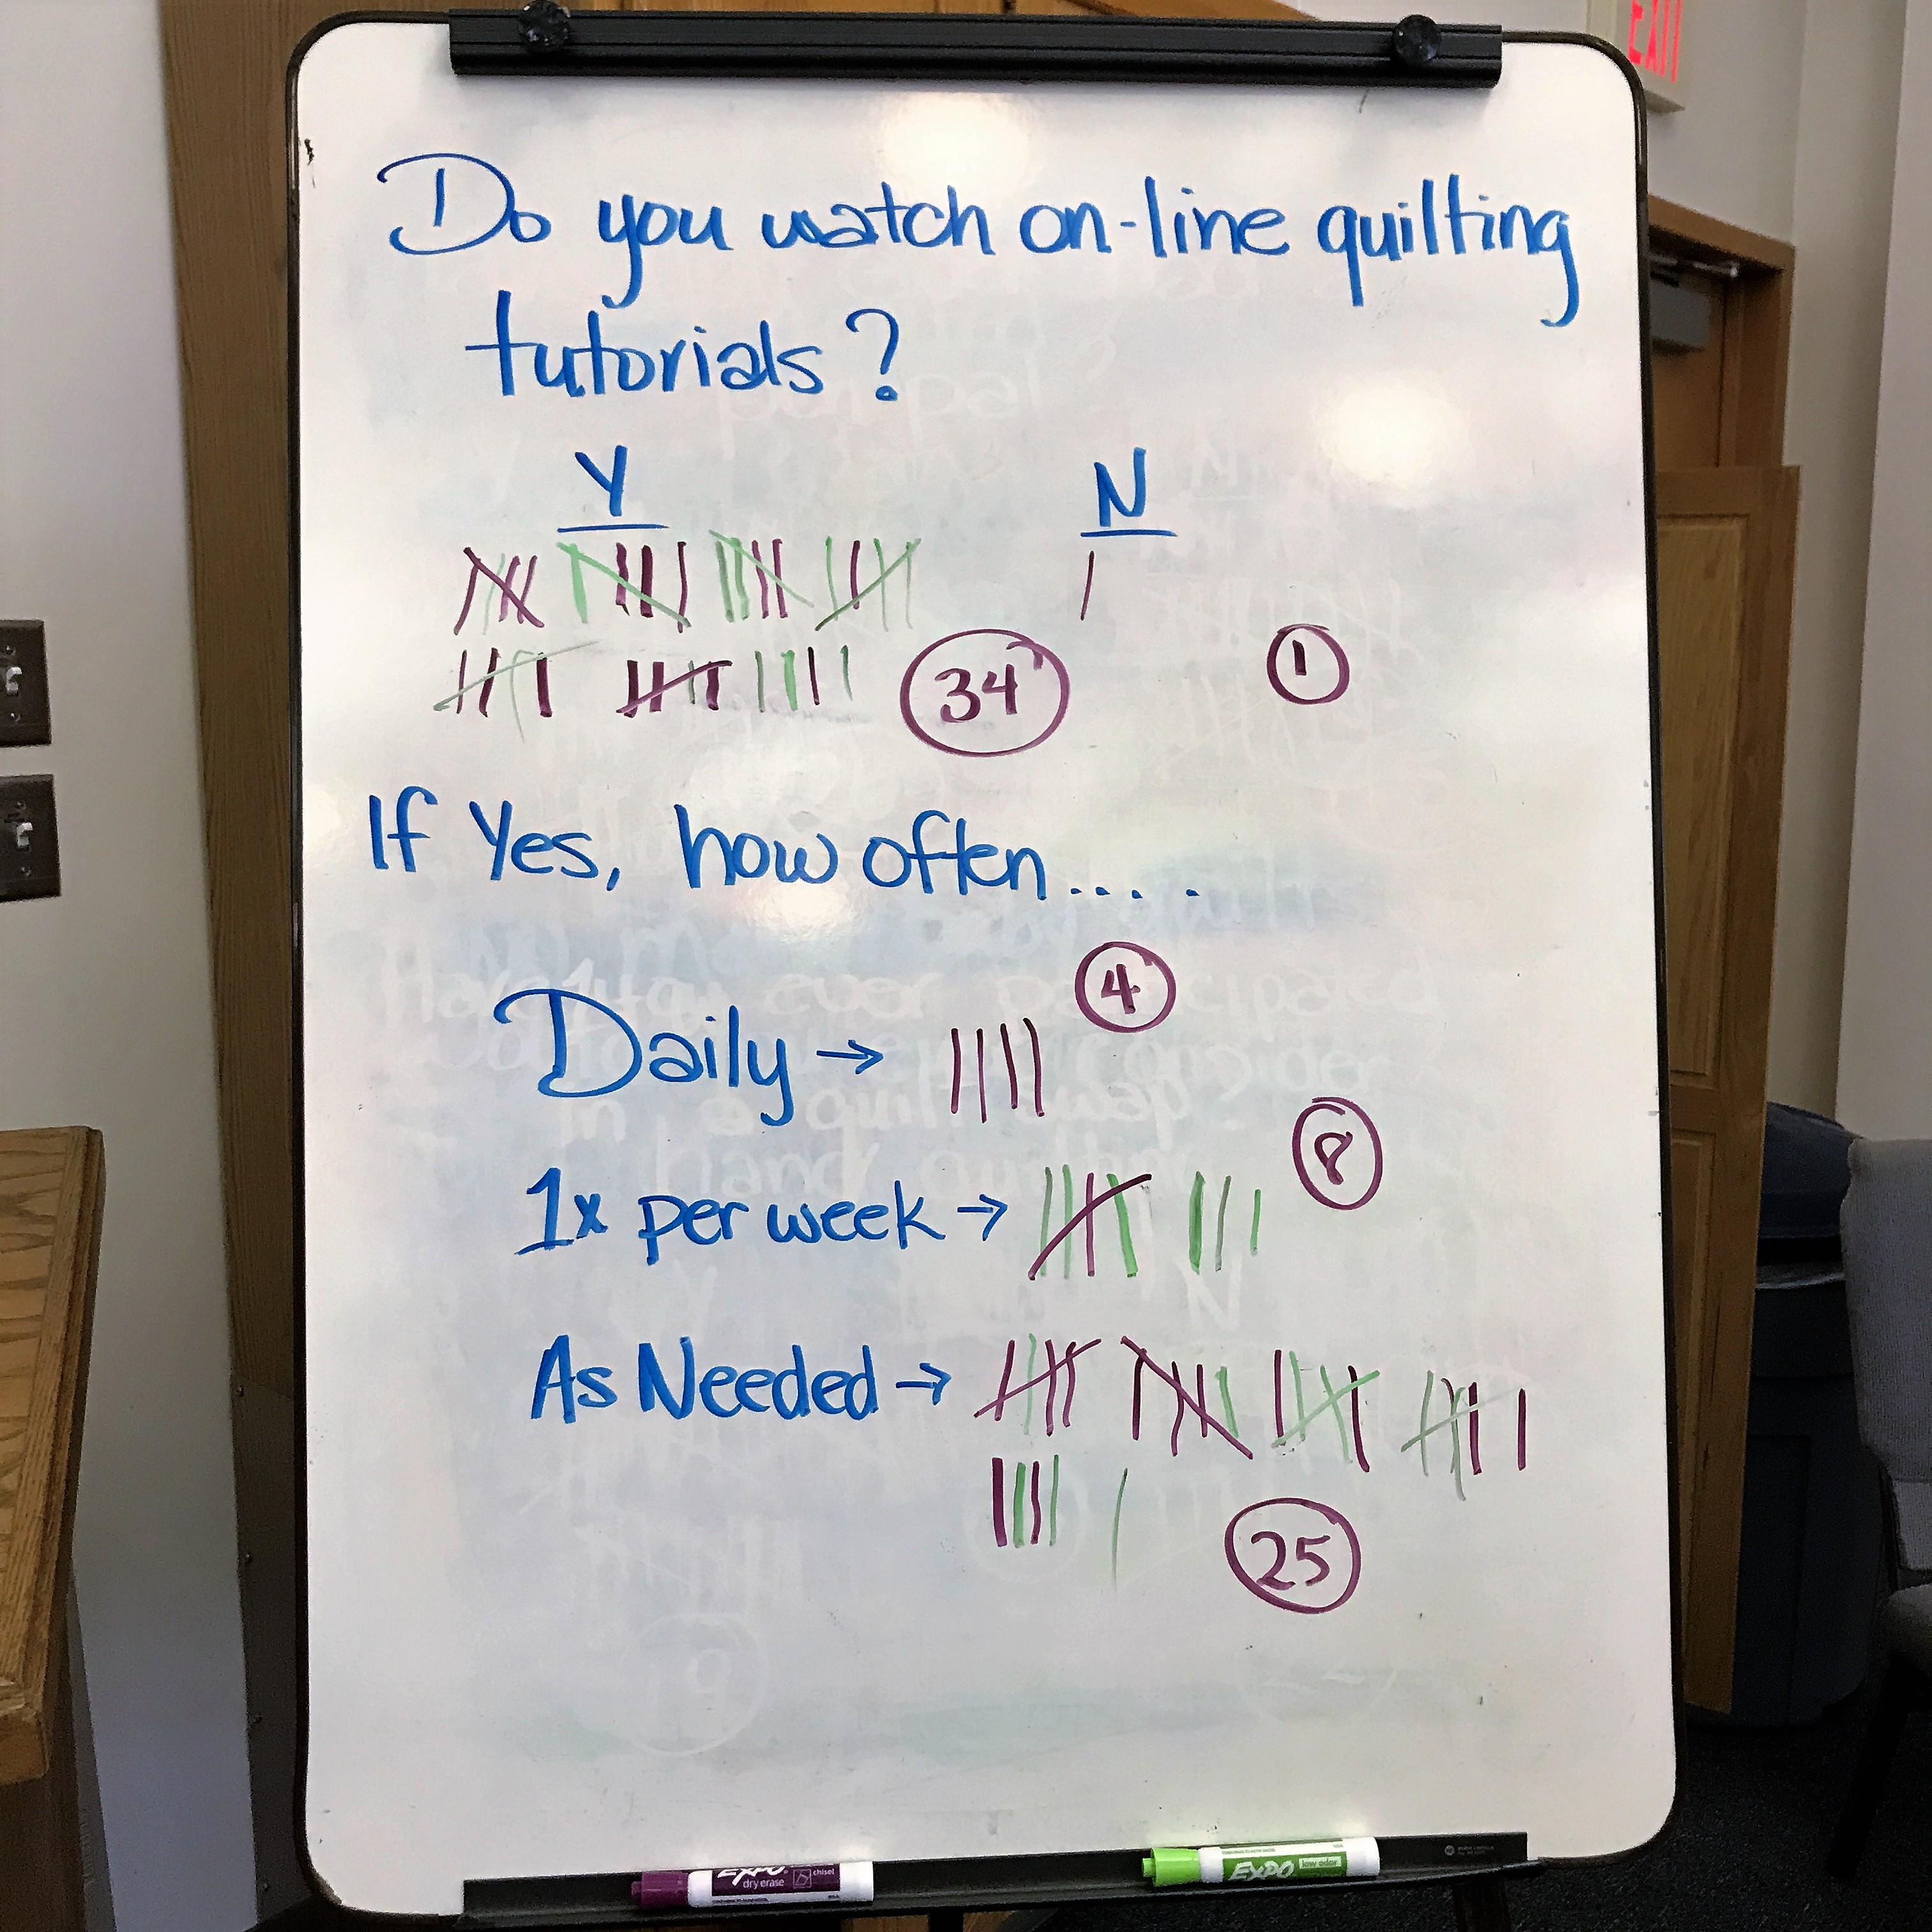 EXIT
Do you watch on-line quilting
tutorials?
Y N
34 1
If Yes, how often....
4
Daily →
8
1x per week →
As Needed →
25
EXPO
dry erase
chisel
EXPO
low odor